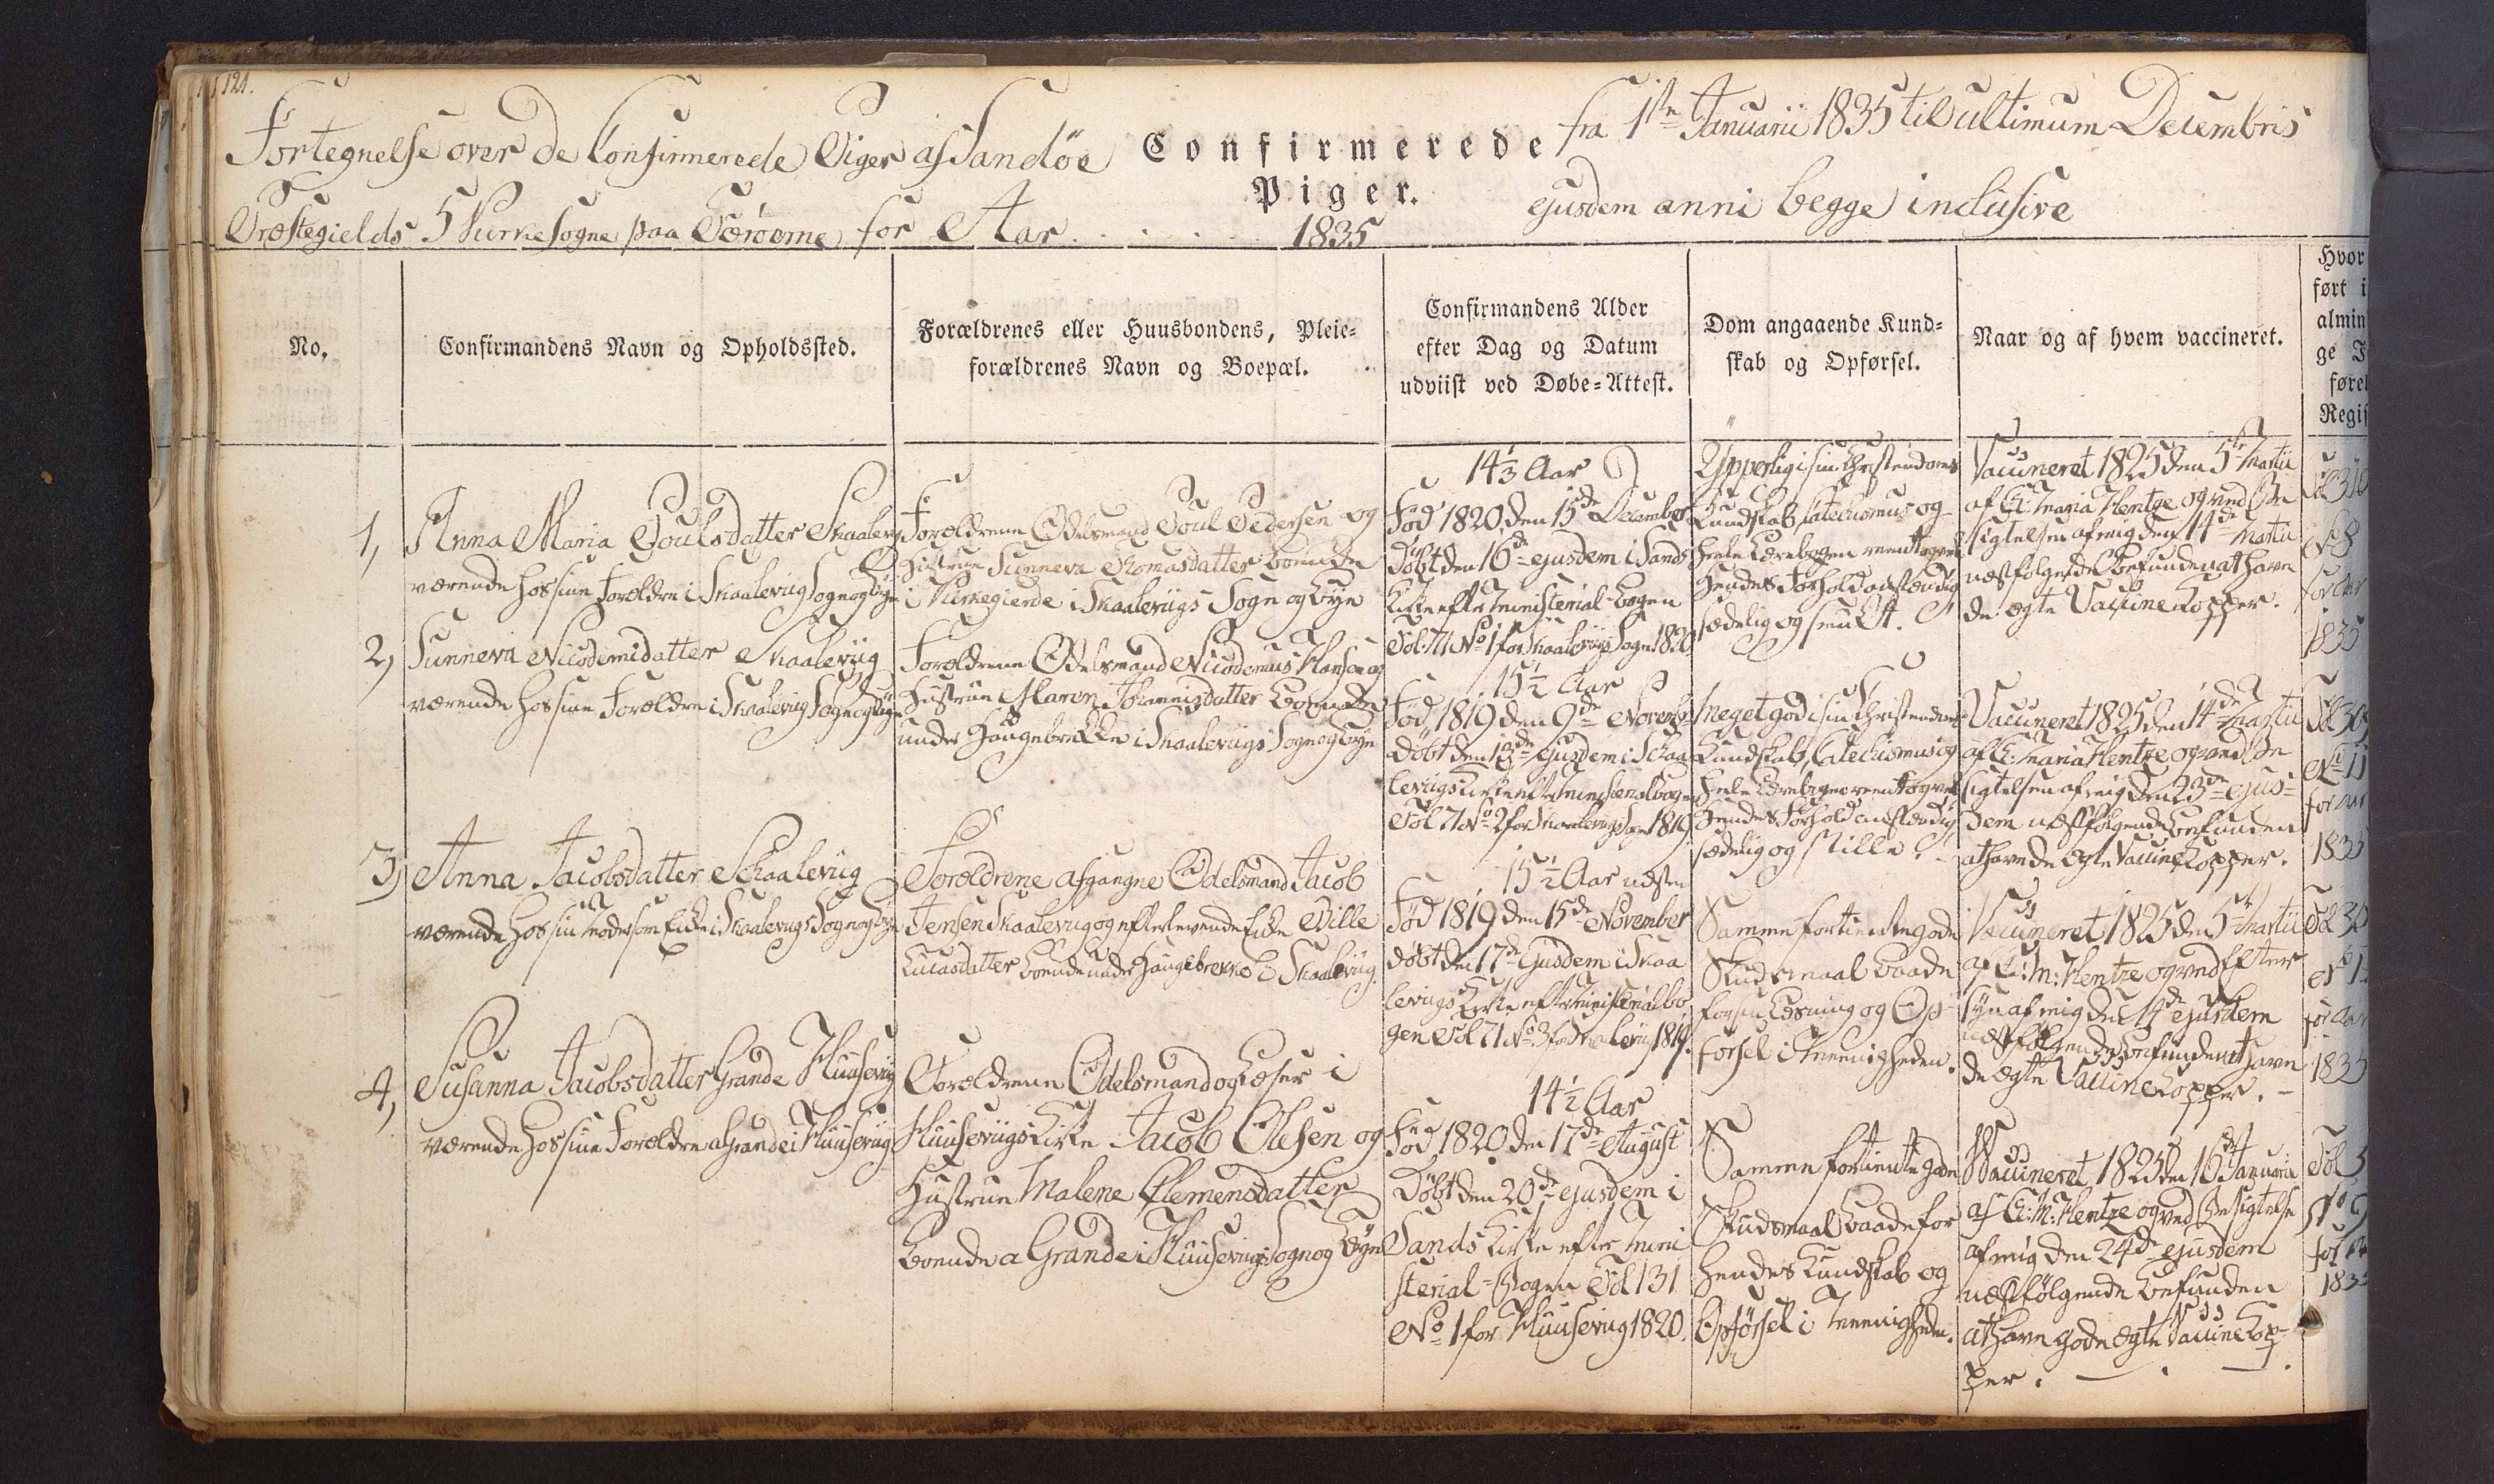 121.
Fortegnelse over de Confirmerede Piger af Sandöe
Confirmerede
fra 1ste Januarii 1835 til ultimum Decembris
Præstegields 5 Kirkesogne paa Færöerne for Aar . . . .
Piger.
1835
ejusdem anni begge inclusive
No.
Confirmandens Navn og Opholdssted.
Forældrenes eller Huusbondens, Pleie-
forældrenes Navn og Boepæl.
Confirmandens Alder
efter Dag og Datum
udviist ved Døbe-Attest.
Dom angaaende Kund-
skab og Opførsel.
Naar og af hvem vaccineret.
Hvor
ført i
almin
ge J
førel
Regis
1,
Anna Maria Poulsdatter Skaalevig
værende hos sine Forældre i Skaalevig Sogn og Bye
Forældrene Odelsmand Poul Pedersen og
Hustrue Sunneva Thomasdatter boende
i Kirkegierde i Skaaleviigs Sogn og Bye
14⅓ Aar
Fød 1820 den 15de December
Døbt den 16de ejusdem i Sands
Kirke efter Ministerial-Bogen
Fol. 71 No 1 for Skaaleviigs Sogn 1820
Ypperlig i sin Christendoms
Kundskab, Catechismus og
heele Lærebogen
Hendes Forhold anstændig
sædelig og smukt.
Vaccineret 1825 den 5te Martii
af E: Maria Hentze og ved Be
sigtelsen af mig den 14de Martii
næstfølgende befunden at have
de ægte Vaccine Kopper.
No 8
for Aar
1835
2,
Sunneva Nicodemidatter Skaaleviig
værende hos sine Forældre i Skaalevig Sogn og Bye
Forældrene Odelsmand Nicodemus Hansen og
Hustrue Maren Johannisdatter boende
under Haugebrekke i Skaaleviigs Sogn og Bye
15½ Aar
Fød 1819 den 9de Novemb.
døbt den 13de Ejusdem i Skaa
leviigs Kirke efter Ministerialbogen
Fol 71 No 2 for Skaalevigs Sogn 1819.
Meget god i sin Christendoms
Kundskab, Catechismus og
Heele Lærebogen
Hendes Forhold anstændig
sædelig og stille.
Vaccineret 1825 den 14de Martii
af E: Maria Hentze og ved Be
sigtelsen af mig den 23de ejus-
dem næstfølgende befunden
at have de ægte Vaccine Kopper.
Fol 309
No 11
for Aar
1835
3,
Anna Jacobsdatter Skaaleviig
værende hos sin Moder som Enke i Skaalevigs Sogn og Bye
Forældrene afgangne Odelsmand Jacob
Jensen Skaalevig og efterlevende Enke Bille
Lucasdatter boende under Haugebrekke i Skaalevig
15½ Aar næsten
Fød 1819 den 15de November
døbt den 17de Ejusdem i Skaa
levigs Kirke efter Ministerialbo
gen Fol 71 No 3 for Skaalevig 1819.
Samme fortiente gode
Skudsmaal baade
for sin Læsning og Op-
førsel i Meenigheden.
Vaccineret 1825 den 5te Martii
af E: M: Hentze og ved Efter
syn af mig den 14de ejusdem
næstfølgende befunden at have
de ægte Vaccine Kopper.
Fol 30
for Aar
1835
4,
Susanna Jacobsdatter Grande Huuseviig
værende hos sine Forældre a Grande i Huuseviig
Forældrene Odelsmand og Læser i
Huuseviigs Kirke Jacob Olesen og
Hustrue Malene Clemensdatter
boende a Grande i Huusevigs Sogn og Bye
14½ Aar
Fød 1820 den 17de August
Døbt den 20de ejusdem i
Sands Kirke efter Mini
sterial-Bogen Fol 131
No 1 for Huusevig 1820.
Samme fortiente gode
Skudsmaal baade for
Hendes Kundskab og
Opførsel i Meenigheden.
Vaccineret 1825 den 16de Januarii
af E: M: Hentze og ved Besigtelse
af mig den 24de ejusdem
næstfølgende befunden
at have gode ægte Vaccine Kop-
per.
Fol 3
No 9
for A
183